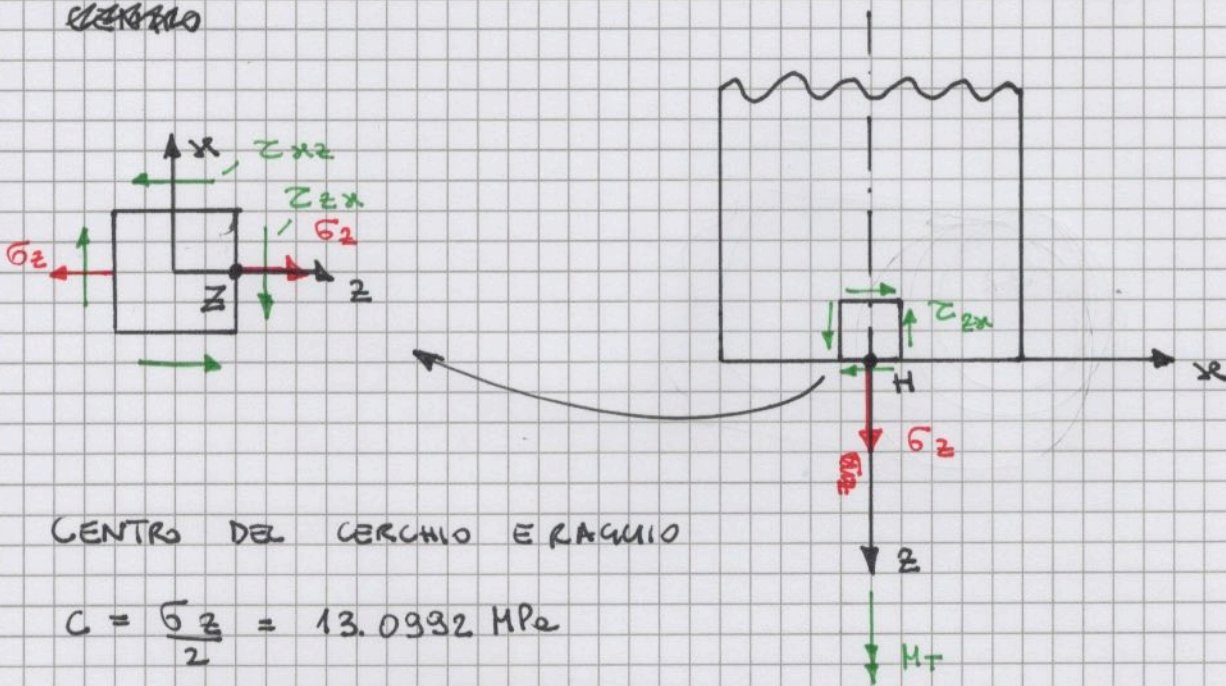 x
τxz
τzx
σz
σz
Z
z
τzx
H
x
σz
CENTRO DEL CERCHIO E RAGGIO
z
C = σz/2 = 13.0992 MPa
MT